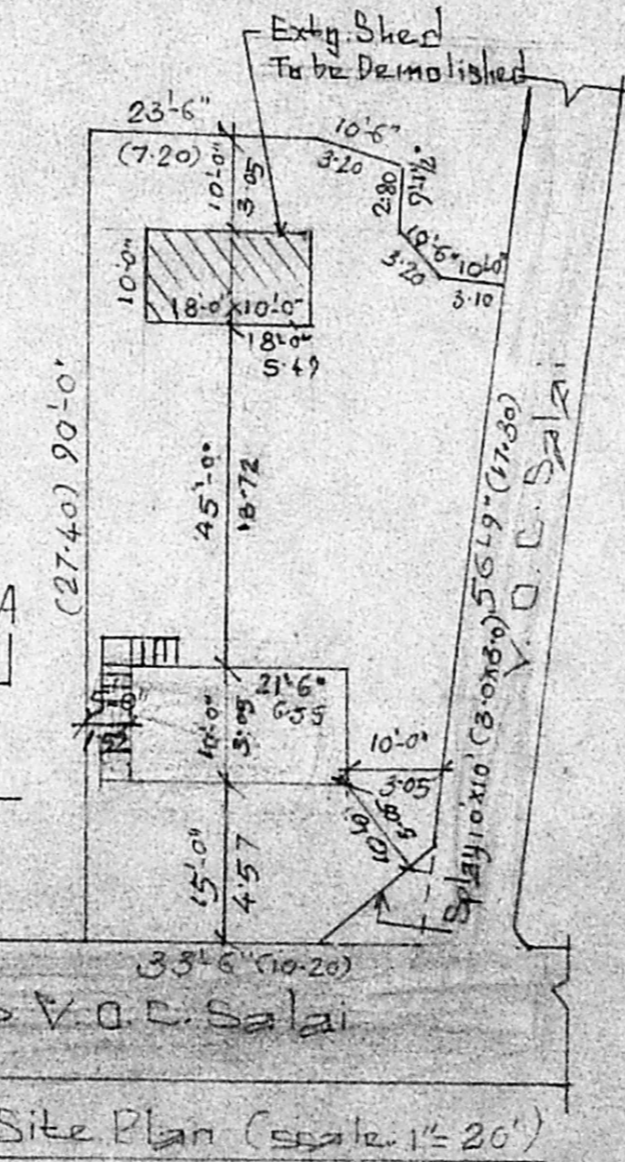 Extg. Shed
To be Demolished
23'-6"
(7.20)
10'-6"
3.20
10'-0"
3.05
2.80
9'-1½"
10'-6"
3.20
10'-0"
3.10
10'-0"
18'-0"x10'-0"
18'-0"
5.49
(27.40) 90'-0"
45'-0"
13.72
56'-9" (17.30)
V.O.C. Salai
21'-6"
6.55
10'-0"
3.05
10'-0"
3.05
15'-0"
4.57
10'-0"
3.05
Splay 10'x10' (3.0x3.0)
33'-6" (10.20)
V.O.C. Salai
Site Plan (scale: 1"= 20')